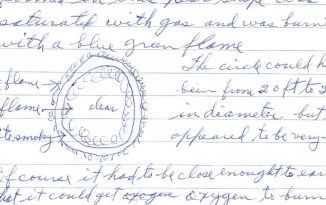 saturated with gas and was burni
with a blue green flame
flame
The circle could h
flame
clear
been from 20 ft to 2
in diameter but
smoky
appeared to be very
Of course it had to be close enough to ear
hat it could get oxogen oxygen to burn